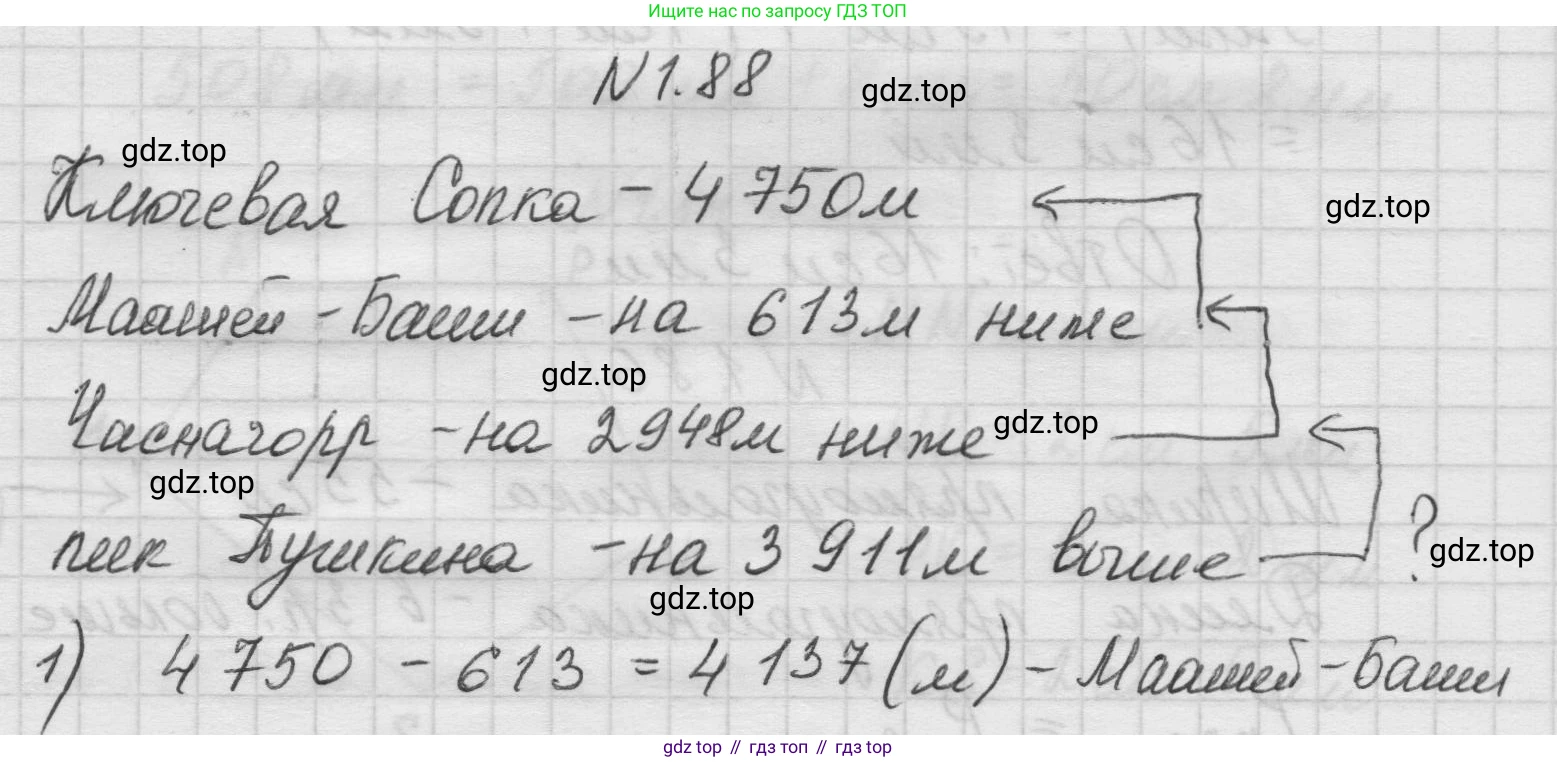 Ищите нас по запросу ГДЗ ТОП
N 1.88
gdz.top
gdz.top
Ключевая Сопка - 4 750м
gdz.top
Маашей - Баши - на 613м ниже
gdz.top
Часначорр - на 2948м ниже
gdz.top
gdz.top
пик Пушкина - на 3 911м выше ?
gdz.top
gdz.top
1) 4 750 - 613 = 4 137 (м) - Маашей - Баши
gdz top // гдз топ // гдз top